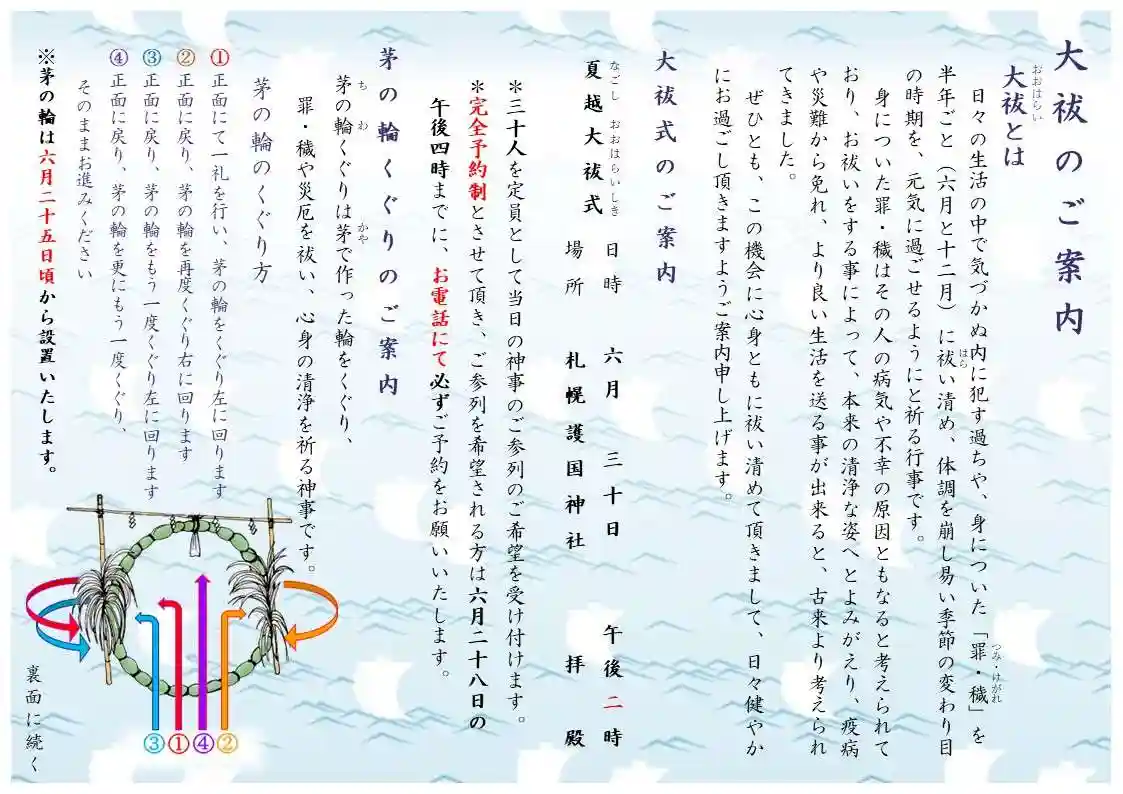 大祓のご案内
大祓とは
おおはらい
日々の生活の中で気づかぬ内に犯す過ちや、身についた「罪・穢」を
つみ・けがれ
半年ごと（六月と十二月）に祓い清め、体調を崩し易い季節の変わり目
はら
の時期を、元気に過ごせるようにと祈る行事です。
身についた罪・穢はその人の病気や不幸の原因ともなると考えられて
おり、お祓いをする事によって、本来の清浄な姿へとよみがえり、疫病
や災難から免れ、より良い生活を送る事が出来ると、古来より考えられ
てきました。
ぜひとも、この機会に心身ともに祓い清めて頂きまして、日々健やか
にお過ごし頂きますようご案内申し上げます。
大祓式のご案内
夏越大祓式
なごし おおはらいしき
日時 六月 三十日 午後二時
場所 札幌護国神社 拝殿
＊三十人を定員として当日の神事のご参列のご希望を受け付けます。
＊完全予約制とさせて頂き、ご参列を希望される方は六月二十八日の
午後四時までに、お電話にて必ずご予約をお願いいたします。
茅の輪くぐりのご案内
茅の輪くぐりは茅で作った輪をくぐり、
ち わ かや
罪・穢や災厄を祓い、心身の清浄を祈る神事です。
茅の輪のくぐり方
①正面にて一礼を行い、茅の輪をくぐり左に回ります
②正面に戻り、茅の輪を再度くぐり右に回ります
③正面に戻り、茅の輪をもう一度くぐり左に回ります
④正面に戻り、茅の輪を更にもう一度くぐり、
そのままお進みください
※茅の輪は六月二十五日頃から設置いたします。
③①④②
裏面に続く